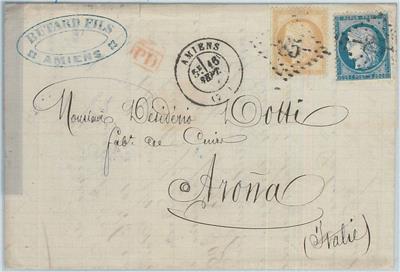 RETARD FILS
AMIENS
PD
AMIENS
5E 16
SEPT.
Monsieur Desidério Dotti
fabt. de Cuirs
Arona
(Italie)